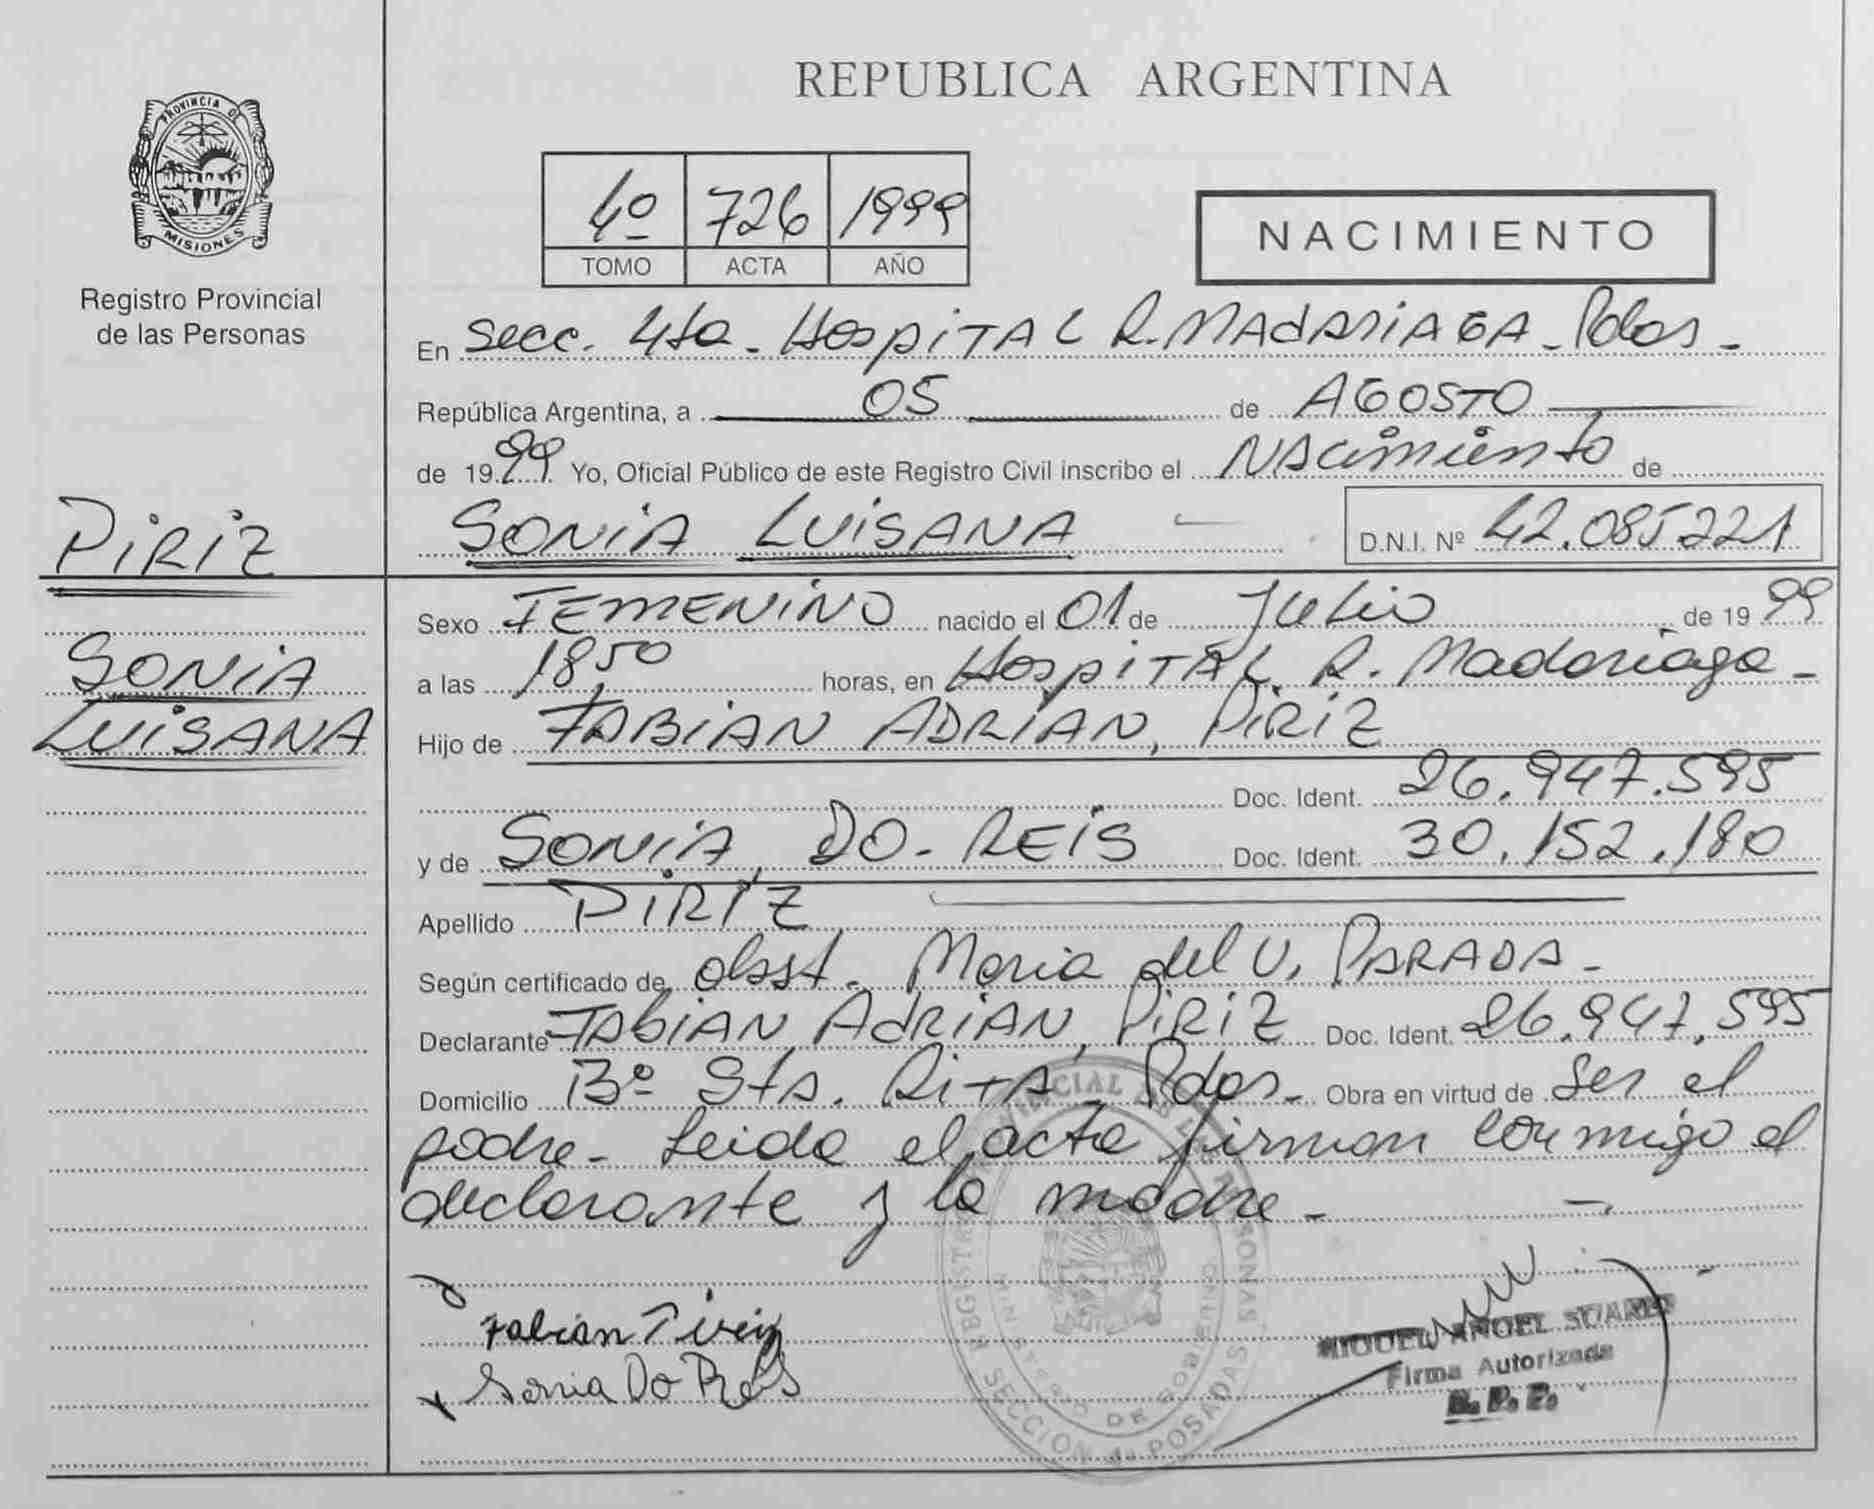 REPUBLICA ARGENTINA
PROVINCIA DE
MISIONES
Registro Provincial
de las Personas
4º 726 1999
TOMO ACTA AÑO
NACIMIENTO
En Secc. 4ta. Hospital R. MADARIAGA - Pdas. -
República Argentina, a 05 de AGOSTO
de 1999 Yo, Oficial Público de este Registro Civil inscribo el NACimiento de
PiRiZ
SONiA LUiSANA
D.N.I. Nº 42.085221
Sexo FEMENiNO nacido el 01 de Julio de 1999
SONiA
LUiSANA
a las 18 50 horas, en HospiTAL R. Madariaga -
Hijo de FABiAN ADRiAN, PiRiZ
Doc. Ident. 26.947.595
y de SONiA, DO-REiS Doc. Ident. 30.152.180
Apellido PiRiZ
Según certificado de obst. Maria del V. PARADA -
Declarante FAbiAN AdRiAN, PiRiZ Doc. Ident. 26.947.595
Domicilio Bº Sta. RiTA Pdas. - Obra en virtud de Ser el
padre - Leida el acta firman conmigo el
declarante y la madre -
Fabian Piriz
Sonia Do Reis
MIGUEL ANGEL SUAREZ
Firma Autorizada
R. P. P.
REGISTRO PROVINCIAL DE LAS PERSONAS
MINISTERIO DE GOBIERNO
SECCION 4a POSADAS